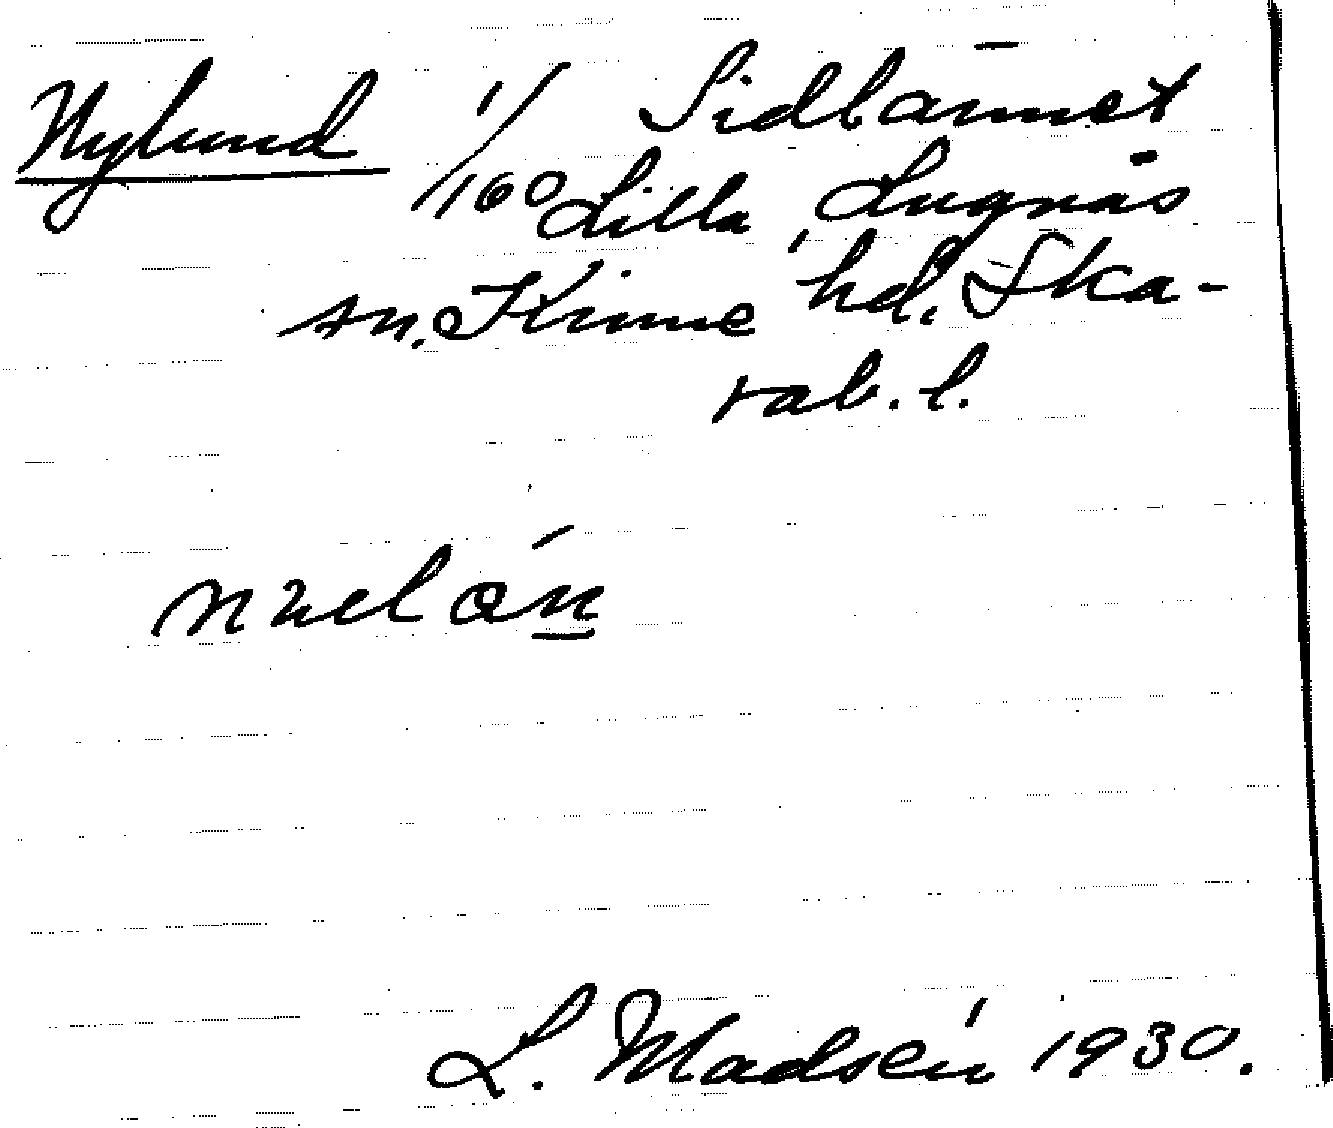 Nylund 1/160 Sidlännet
Lilla Lugnås
sn. Kinne hd. Ska-
rab. l.
L. Madsén 1930.